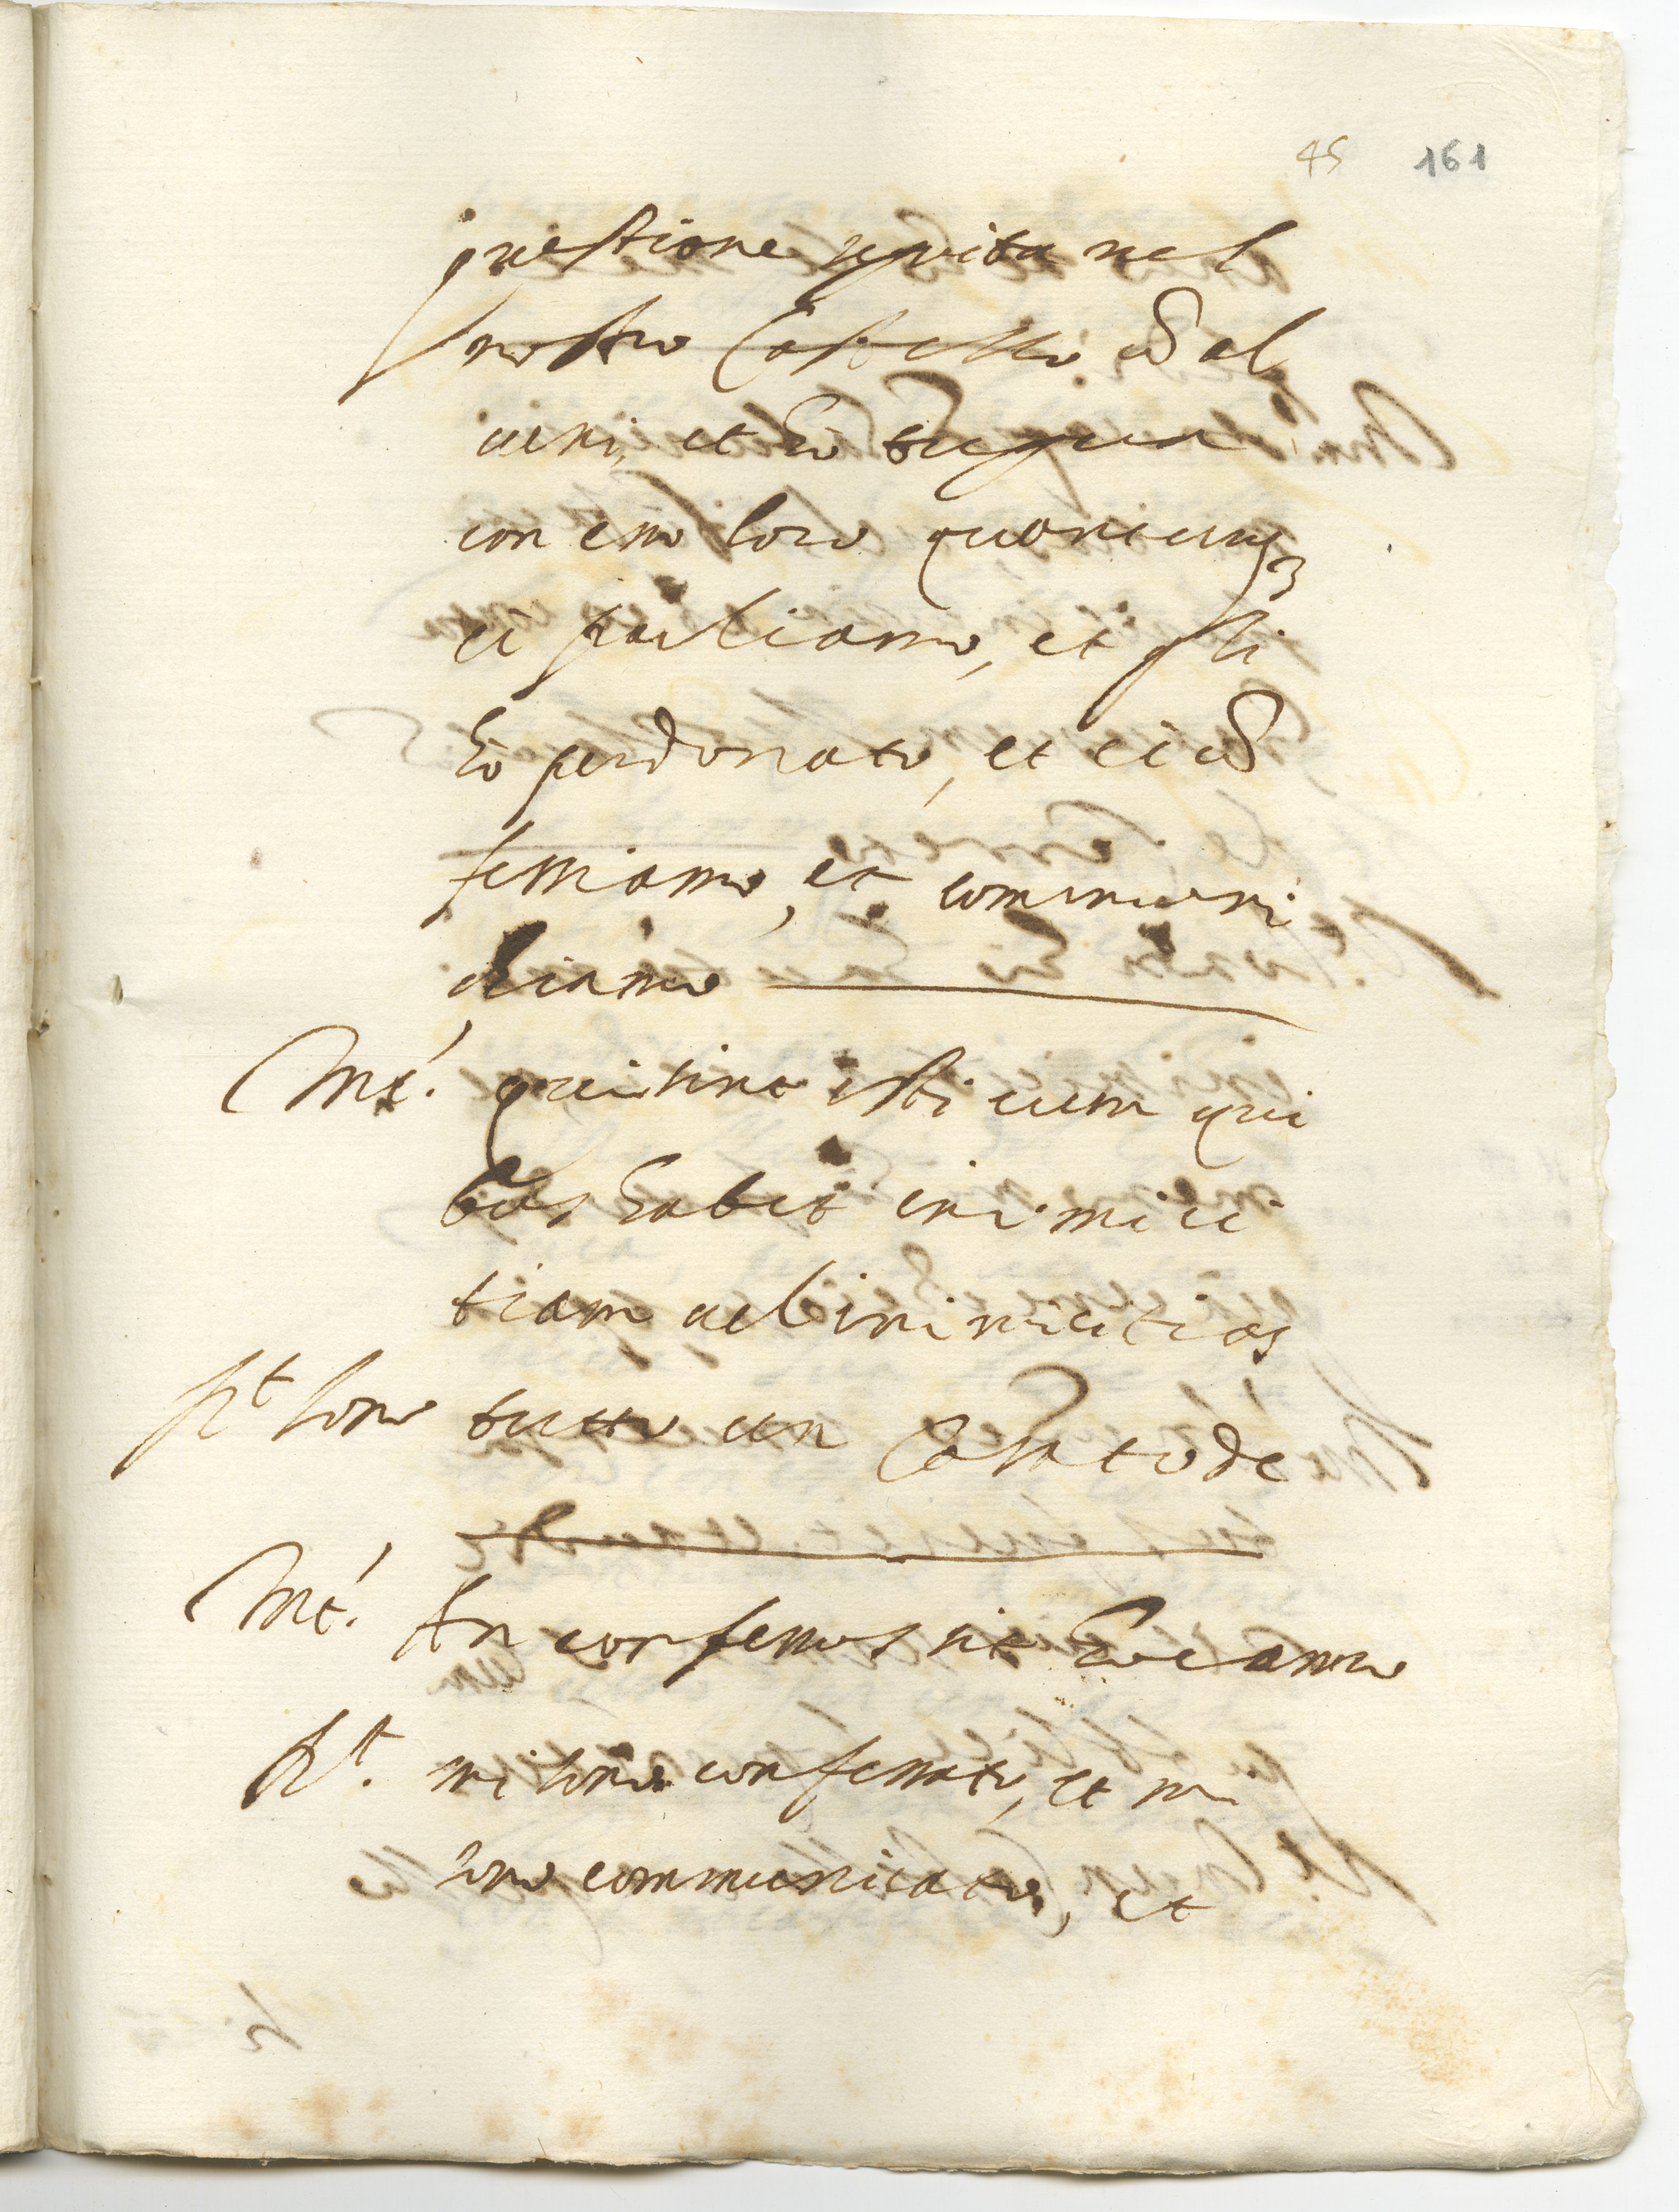 45 161
questione seguita nel
nostro Castello cõ al
cuni, et hò tregua
con esso loro quantunq3
ci parliamo, et gli
hò perdonato, et ci cõ
fessiamo, et communi
chiamo
Int. qui sint isti cum qui
bus habet inimici
tiam vel inimicitias
Rt sono tutto un Casato de
Int. An confessus sit hoc anno
Rt. mi sono confessato, et mi
sono communicato, et